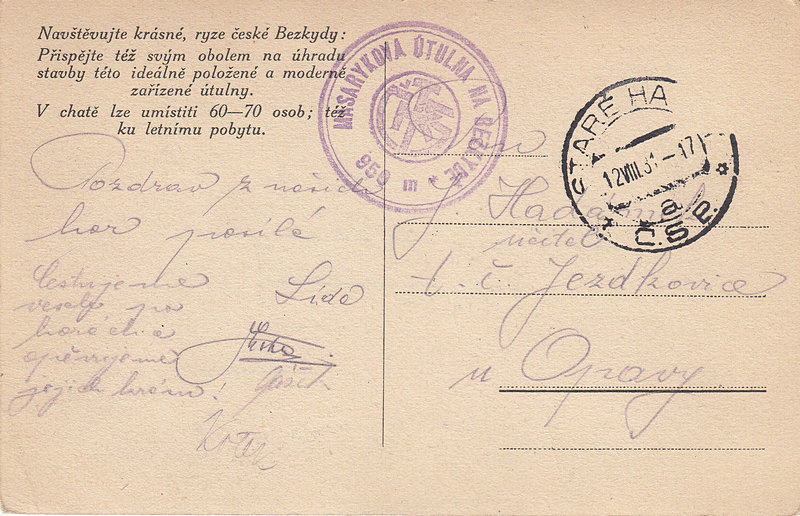 Navštěvujte krásné, ryze české Bezkydy:
Přispějte též svým obolem na úhradu
stavby této ideálně položené a moderně
zařízené útulny.
V chatě lze umístiti 60—70 osob; též
ku letnímu pobytu.
MASARYKOVA ÚTULNA NA BEČVĚ
959 m
STARÉ HA
12.VIII.31.-17
a
Č.S.P.
Pozdrav z našich
hor posílá
Lída
Cestujeme
vesele po
horách a
opěvujeme
jejich krásu!
J. Hadam
učitel
t. č. Jezdkovice
u Opavy